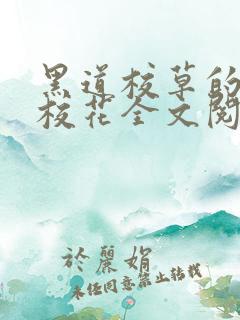 黑道校草的
校花全文阅
於丽娟
未经同意禁止转载